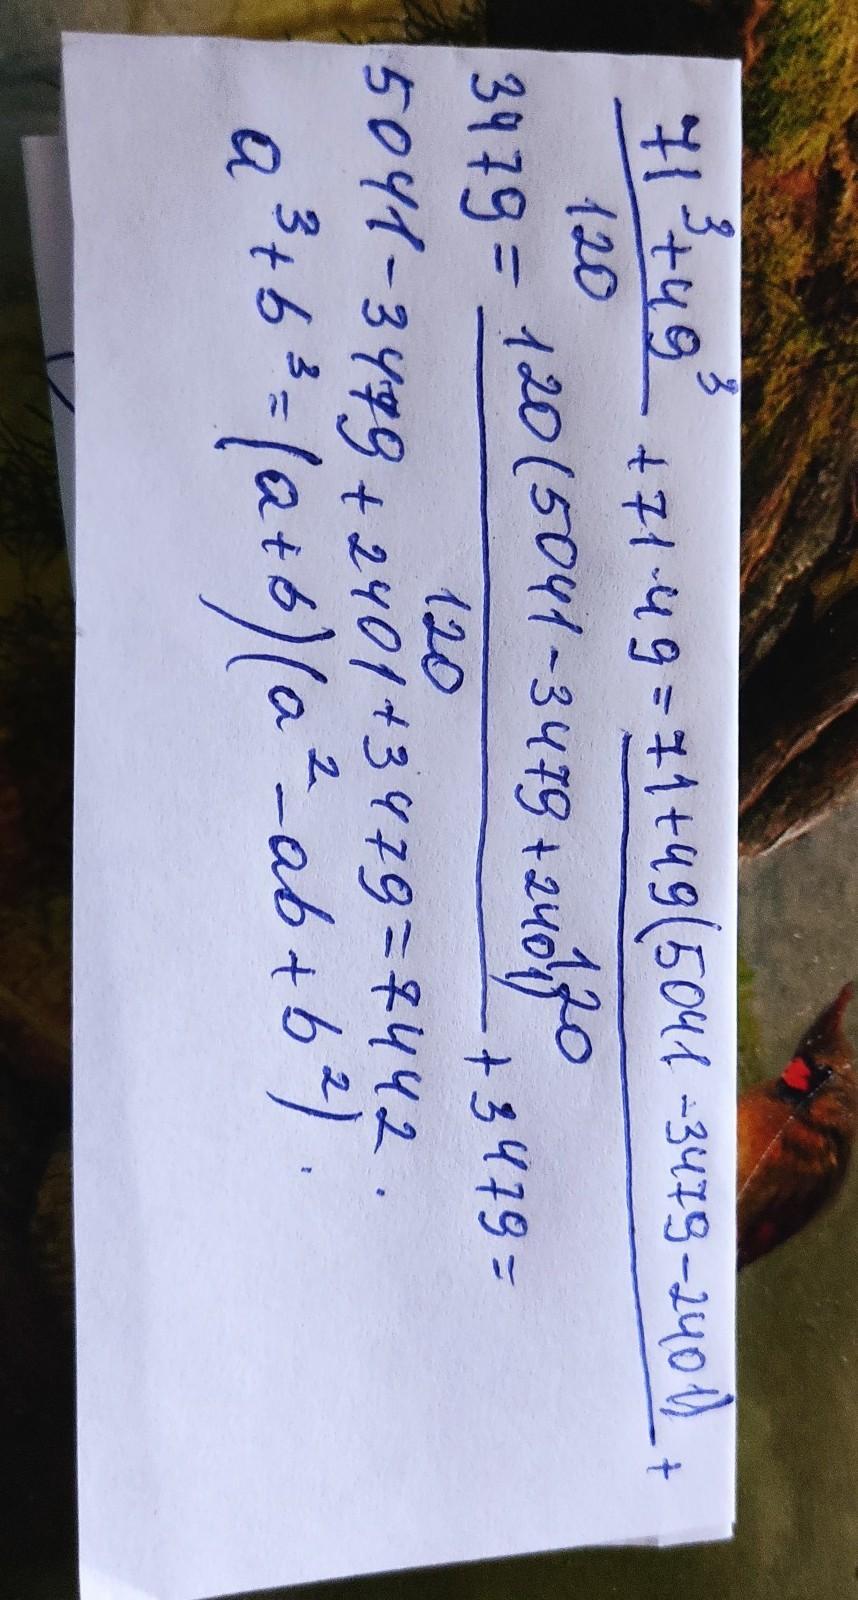 71³+49³ / 120 + 71·49 = 71+49(5041-3479-2401) / 120 +
3479 = 120(5041-3479+2401) / 120 + 3479 =
5041-3479+2401+3479=7442.
a³+b³=(a+b)(a²-ab+b²).